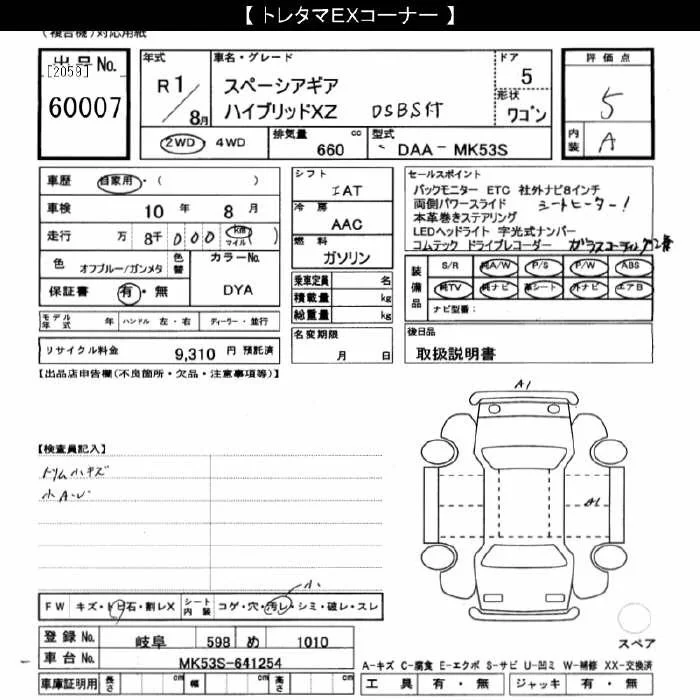 【 トレタマEXコーナー 】
(複合紙)対応用紙
出品No.
[2059]
60007
年式
R 1/8月
車名・グレード
スペーシアギア
ハイブリッドXZ DSBS付
ドア
5
形状
ワゴン
評価点
5
内装 A
2WD ・ 4WD
排気量 cc
660
型式
DAA－MK53S
車歴 自家用・( )
車検 10 年 8 月
走行 万 8千 000 km マイル( )
色 オフブルー/ガンメタ
色替
カラーNo.
DYA
保証書 有・無
シフト
IAT
冷房
AAC
燃料
ガソリン
乗車定員 名
積載量 kg
総重量 kg
セールスポイント
バックモニター ETC 社外ナビ8インチ
両側パワースライド シートヒーター!
本革巻きステアリング
LEDヘッドライト 字光式ナンバー
コムテック ドライブレコーダー ガラスコーティング2番
装備品
S/R 純A/W P/S P/W ABS
純TV 純ナビ 革シート 外ナビ エアB
ナビ型番:
モデル年式 年 ハンドル 左・右 ディーラー・並行
リサイクル料金 9,310 円 預託済
名変期限
月 日
後日品
取扱説明書
【出品店申告欄(不良箇所・欠品・注意事項等)】
【検査員記入】
トリム小キズ
小A・U
A1
A1
FW キズ・トビ石・割レX シート内装 コゲ・穴・汚レ・シミ・破レ・スレ
小
スペア
登録No. 岐阜 598 め 1010
車台No. MK53S-641254
A-キズ C-腐食 E-エクボ S-サビ U-凹ミ W-補修 XX-交換済
車庫証明用 長さ cm 幅 cm 高さ cm
工具 有・無 ジャッキ 有・無